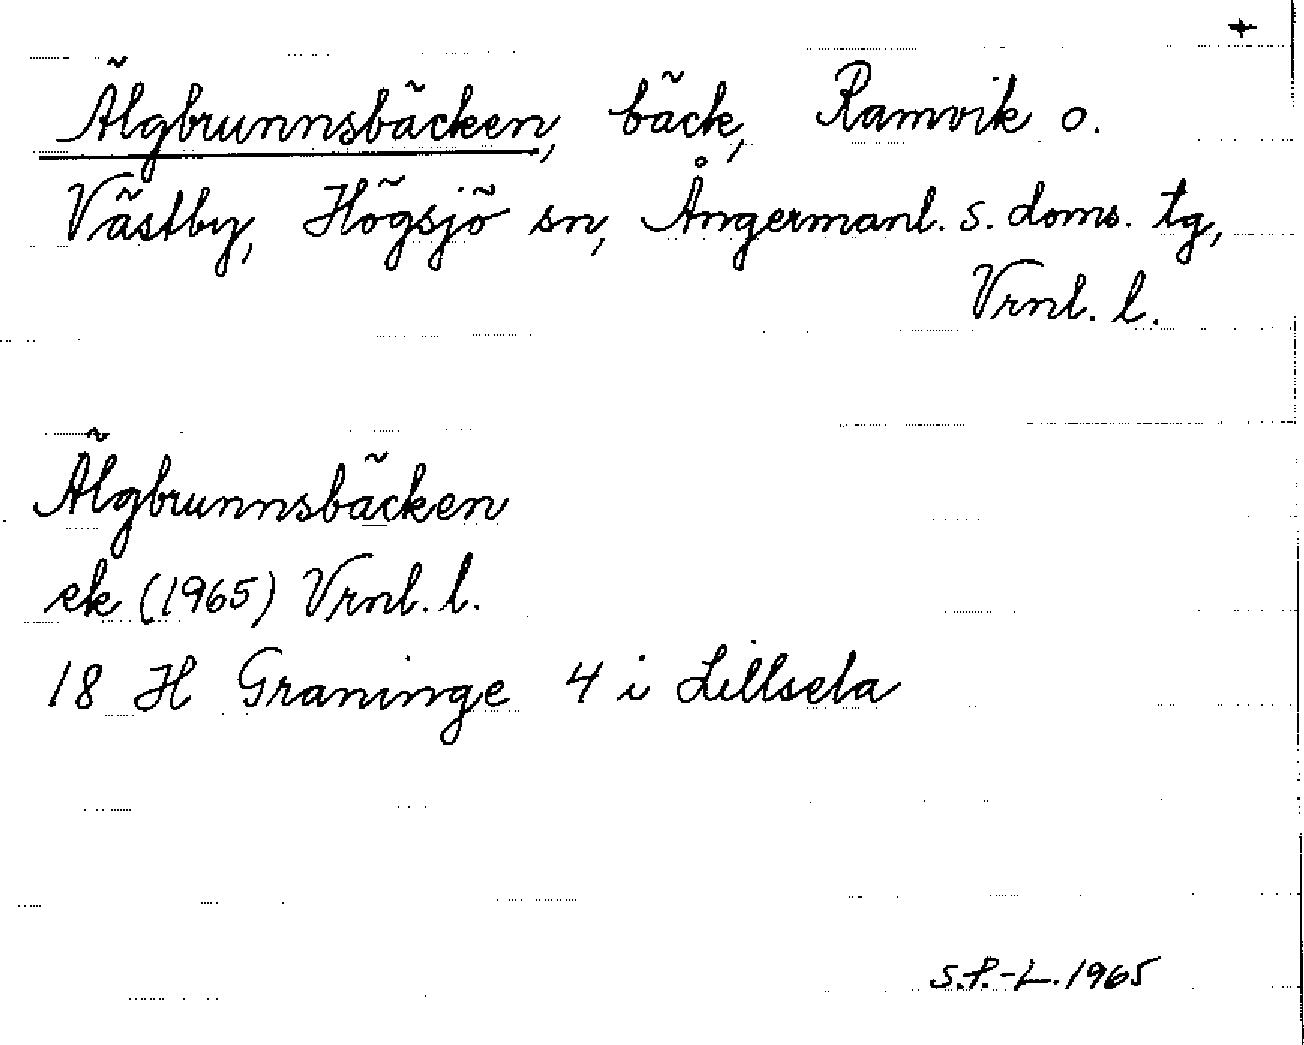 +
Älgbrunnsbäcken, bäck, Ramvik o.
Västby, Högsjö sn, Ångermanl. s. doms. tg,
Vrnl. l.
Älgbrunnsbäcken
ek (1965) Vrnl. l.
18 H Graninge 4 i Lillsela
S.P.-L. 1965